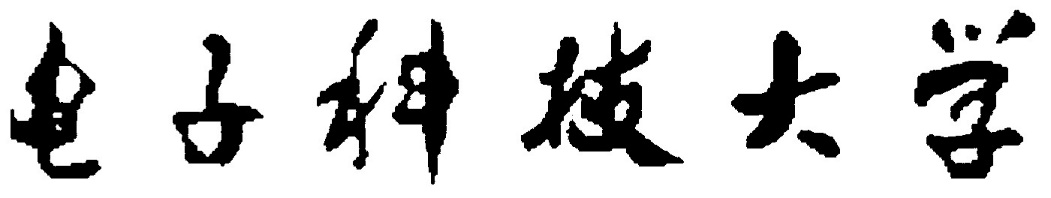 电子科技大学